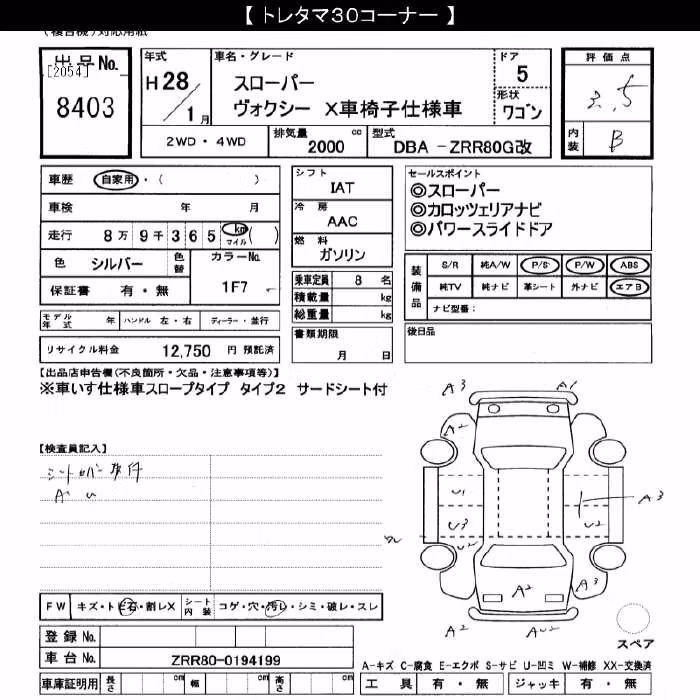 【 トレタマ30コーナー 】
(複合名)対応用紙
出品No.
[2054]
8403
年式
H 28 / 1月
車名・グレード
スローパー
ヴォクシー X車椅子仕様車
ドア
5
形状
ワゴン
2WD・4WD
排気量 2000 cc
型式 DBA -ZRR80G改
評価点
3.5
内装 B
車歴 自家用・( )
車検 年 月
走行 8万 9千 3 6 5 km マイル ( )
色 シルバー 色替 カラーNo.
1F7
保証書 有・無
シフト
IAT
冷房
AAC
燃料
ガソリン
乗車定員 8 名
積載量 kg
総重量 kg
書類期限
月 日
セールスポイント
◎スローパー
◎カロッツェリアナビ
◎パワースライドドア
装備品
S/R 純A/W P/S P/W ABS
純TV 純ナビ 革シート 外ナビ エアB
ナビ型番:
後日品
モデル年式 年 ハンドル 左・右 ディーラー・並行
リサイクル料金 12,750 円 預託済
【出品店申告欄(不良箇所・欠品・注意事項等)】
※車いす仕様車スロープタイプ タイプ2 サードシート付
【検査員記入】
A U
FW キズ・トビ石・割レX シート内装 コゲ・穴・汚レ・シミ・破レ・スレ
登録No.
車台No. ZRR80-0194199
車庫証明用 長さ cm 幅 cm 高さ cm
A3 A1
A2
U1 A3
U3 U2
U2
A2 A3
A2 AU2
スペア
A-キズ C-腐食 E-エクボ S-サビ U-凹ミ W-補修 XX-交換済
工具 有・無 ジャッキ 有・無